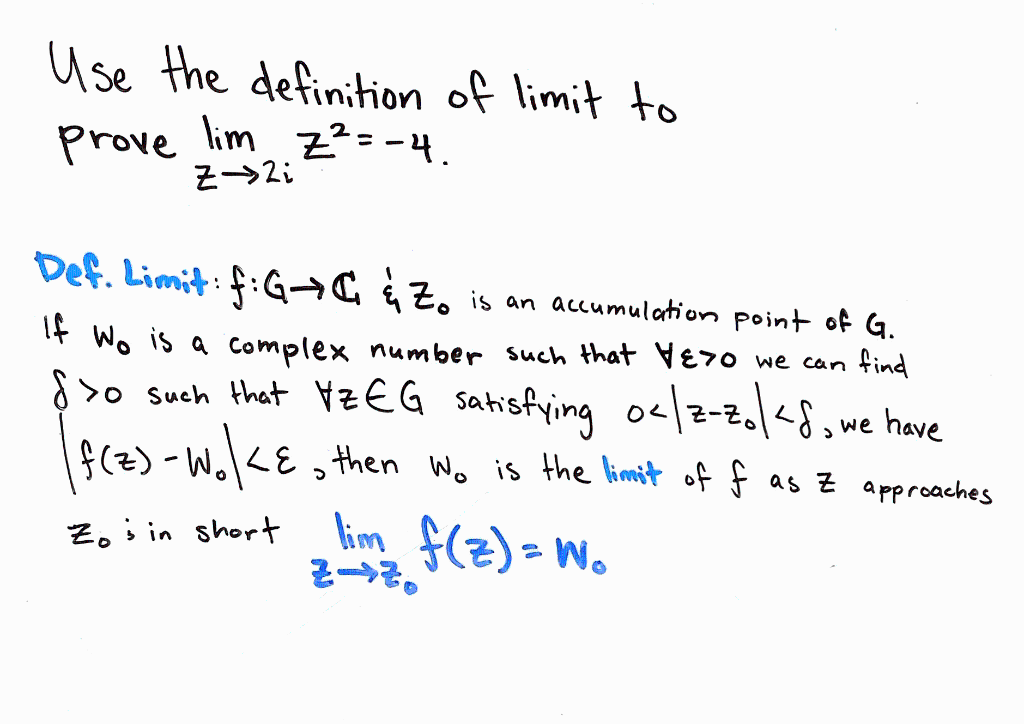 Use the definition of limit to
prove lim z² = -4.
z→2i
Def. Limit: f:G→ℂ & z₀ is an accumulation point of G.
If w₀ is a complex number such that ∀ε>0 we can find
δ>0 such that ∀z∈G satisfying 0<|z-z₀|<δ, we have
|f(z)-w₀|<ε, then w₀ is the limit of f as z approaches
z₀; in short lim f(z) = w₀
z→z₀